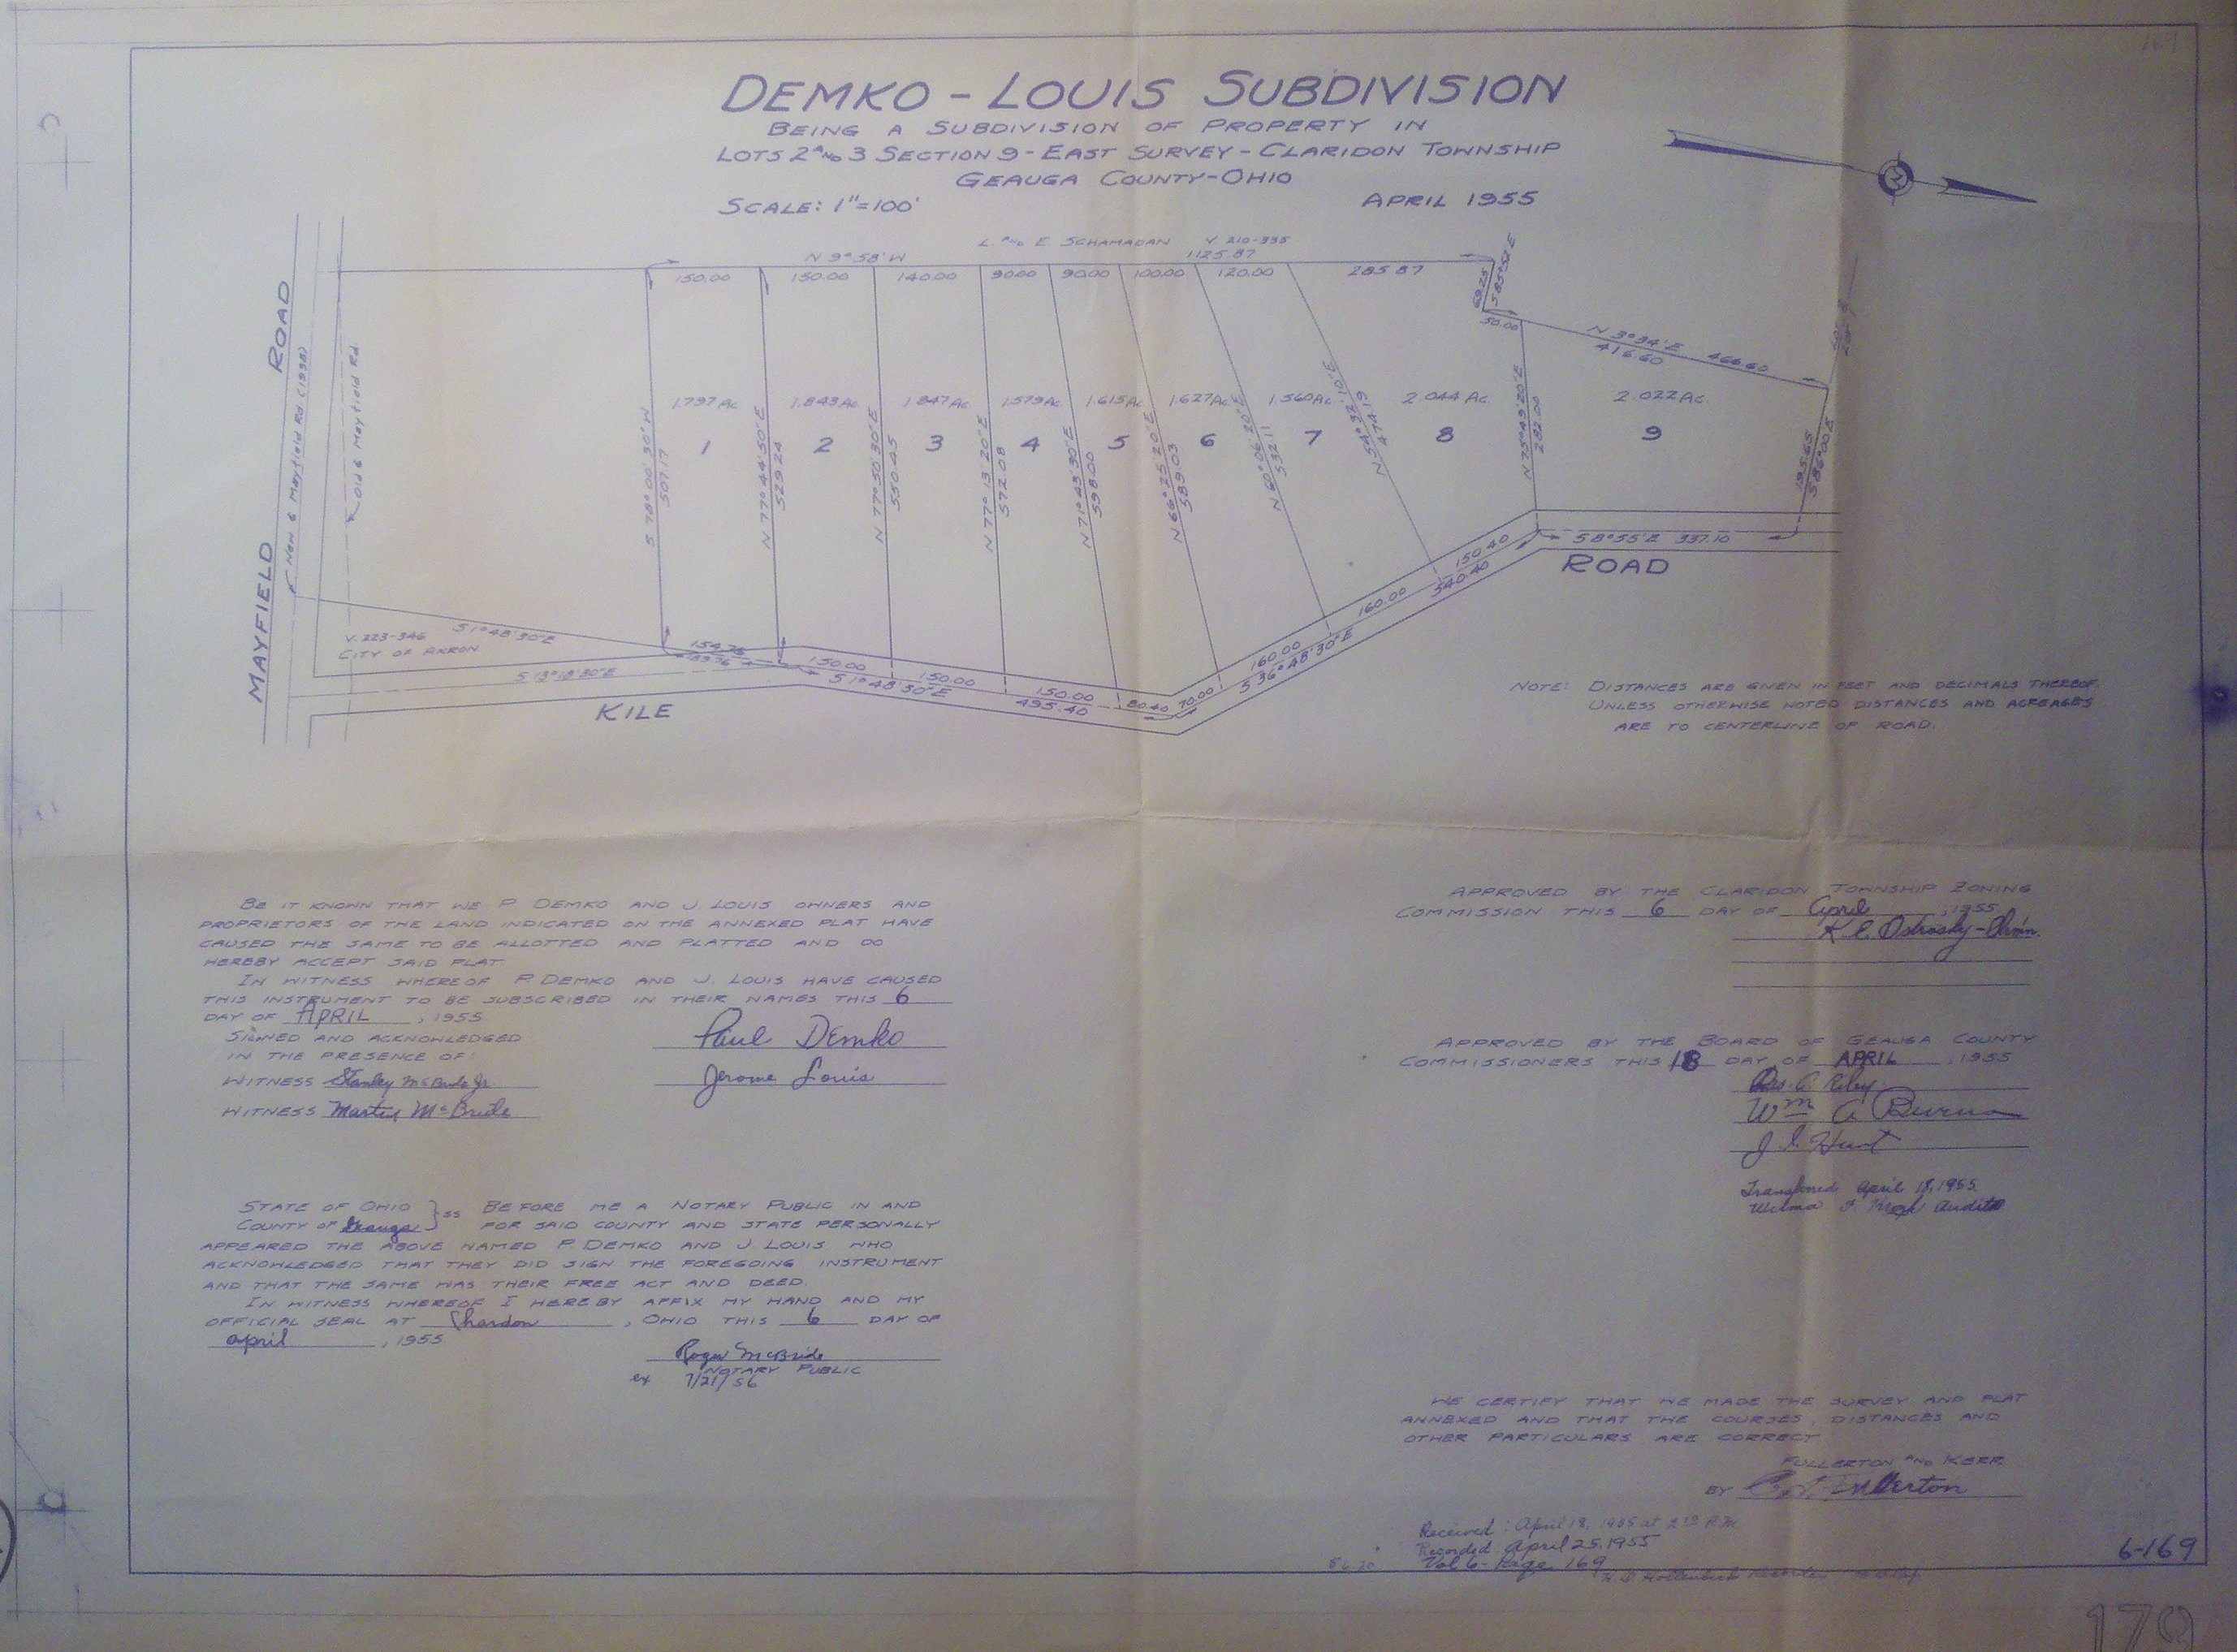 DEMKO - LOUIS SUBDIVISION
BEING A SUBDIVISION OF PROPERTY IN
LOTS 2 AND 3 SECTION 9 - EAST SURVEY - CLARIDON TOWNSHIP
GEAUGA COUNTY - OHIO
SCALE: 1"=100'
APRIL 1955
N
L. AND E. SCHAMADAN V. 210-335
N 9°58' W
1125.87
150.00
150.00
140.00
90.00
90.00
100.00
120.00
285.87
69.25
S 85°52' E
50.00
N 3°34' E
416.60
466.60
MAYFIELD ROAD
New ₵ Mayfield Rd. (1938)
Old ₵ Mayfield Rd.
S 78° 00' 30" W
507.17
N 77° 44' 50" E
529.24
N 77° 50' 30" E
550.45
N 77° 13' 20" E
572.08
N 71° 43' 30" E
598.00
N 66° 25' 20" E
589.03
N 60° 06' 20" E
532.11
N 54° 32' 10" E
474.19
N 75° 49' 20" E
282.00
195.65
S 86° 00' E
1.797 Ac.
1.843 Ac.
1.847 Ac.
1.579 Ac.
1.615 Ac.
1.627 Ac.
1.560 Ac.
2.044 Ac.
2.022 Ac.
1
2
3
4
5
6
7
8
9
S 8°55' E 337.10
ROAD
V. 223-346
CITY OF AKRON
S 1°48'30" E
S 13°18'30" E
154.76
150.00
150.00
150.00
80.40
70.00
160.00
160.00
150.40
540.40
S 1°48'30" E
495.40
S 36°48'30" E
KILE
NOTE: DISTANCES ARE GIVEN IN FEET AND DECIMALS THEREOF.
UNLESS OTHERWISE NOTED DISTANCES AND ACREAGES
ARE TO CENTERLINE OF ROAD.
BE IT KNOWN THAT WE P. DEMKO AND J. LOUIS OWNERS AND
PROPRIETORS OF THE LAND INDICATED ON THE ANNEXED PLAT HAVE
CAUSED THE SAME TO BE ALLOTTED AND PLATTED AND DO
HEREBY ACCEPT SAID PLAT
IN WITNESS WHEREOF P. DEMKO AND J. LOUIS HAVE CAUSED
THIS INSTRUMENT TO BE SUBSCRIBED IN THEIR NAMES THIS 6
DAY OF APRIL, 1955
SIGNED AND ACKNOWLEDGED
IN THE PRESENCE OF:
WITNESS Stanley McBride Jr
WITNESS Martin McBride
Paul Demko
Jerome Louis
STATE OF OHIO } SS BEFORE ME A NOTARY PUBLIC IN AND
COUNTY OF Geauga FOR SAID COUNTY AND STATE PERSONALLY
APPEARED THE ABOVE NAMED P. DEMKO AND J. LOUIS WHO
ACKNOWLEDGED THAT THEY DID SIGN THE FOREGOING INSTRUMENT
AND THAT THE SAME WAS THEIR FREE ACT AND DEED.
IN WITNESS WHEREOF I HEREBY AFFIX MY HAND AND MY
OFFICIAL SEAL AT Chardon, OHIO THIS 6 DAY OF
April, 1955
Roger McBride
NOTARY PUBLIC
ex 7/21/56
APPROVED BY THE CLARIDON TOWNSHIP ZONING
COMMISSION THIS 6 DAY OF April, 1955
Ostrosky - Chrmn.
APPROVED BY THE BOARD OF GEAUGA COUNTY
COMMISSIONERS THIS 18 DAY OF APRIL, 1955
Riley
Wm A Burns
J L Hunt
Transferred April 18, 1955
Wilma F. Auditor
WE CERTIFY THAT WE MADE THE SURVEY AND PLAT
ANNEXED AND THAT THE COURSES, DISTANCES AND
OTHER PARTICULARS ARE CORRECT
FULLERTON AND KERR
BY Fullerton
Received: April 18, 1955 at 2 P.M.
Recorded April 25, 1955
Vol 6- Page 169
6-169
170